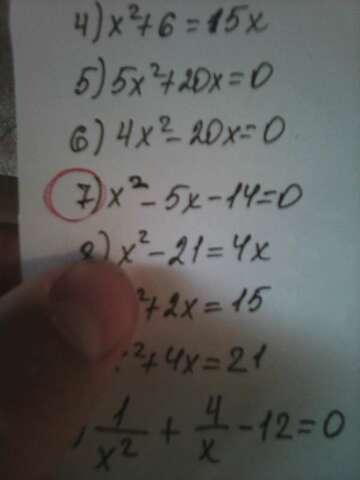 4) x²+6=15x
5) 5x²+20x=0
6) 4x²-20x=0
7) x²-5x-14=0
8) x²-21=4x
²+2x=15
²+4x=21
1/x² + 4/x -12=0